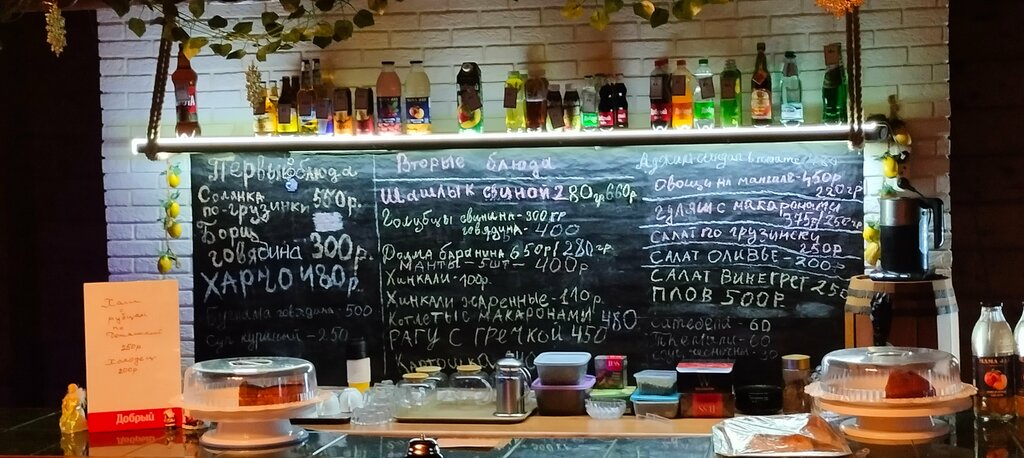 Первые блюда
Солянка
по-грузински 550р.
Борщ
говядина 300р.
ХАРЧО 480р.
говядина - 500
Суп куриный - 250
Вторые блюда
Шашлык свиной 280гр 660р.
Голубцы свинина - 300гр
говядина - 400
Долма баранина 650р/280гр.
Манты - 5шт - 400р
Хинкали - 100р.
Хинкали жаренные - 110р.
Котлеты с макаронами 480
РАГУ С ГРЕЧКОЙ 450
Картошка
Аджапсандал в томате
Овощи на мангале - 450р
220гр
ГУЛЯШ С макаронами
375р/250гр
САЛАТ ПО ГРУЗИНСКИ
250р
САЛАТ ОЛИВЬЕ - 200р
САЛАТ ВИНЕГРЕТ 250
ПЛОВ 500Р.
Сацебели - 60
Ткемали - 60
Хаши
250р
Холодец
200р
Добрый